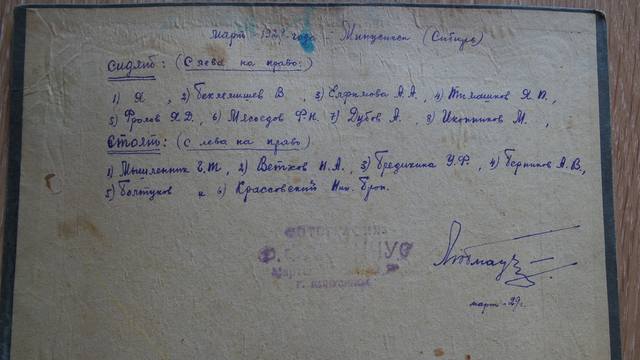 март 1929 года - Минусинск (Сибирь)
Сидять: (с лева на право:)
1) Я , 2) Беклемишев В , 3) Ефимова А.А., 4) Тимашков Я.П.,
5) Фролов Я.Д., 6) Мясоедов Ф.Н. 7) Дубов А. , 8) Иконников М. ,
Стоять: (с лева на право)
1) Мышленник 2) Ветков Н.А., 3) Бредихина У.Ф., 4) Берников А.В.,
5) Болтухов и 6) Крассовский Ник.
ФОТОГРАФИЯ
Ф.
г. МИНУСИНСК
март - 29 г.